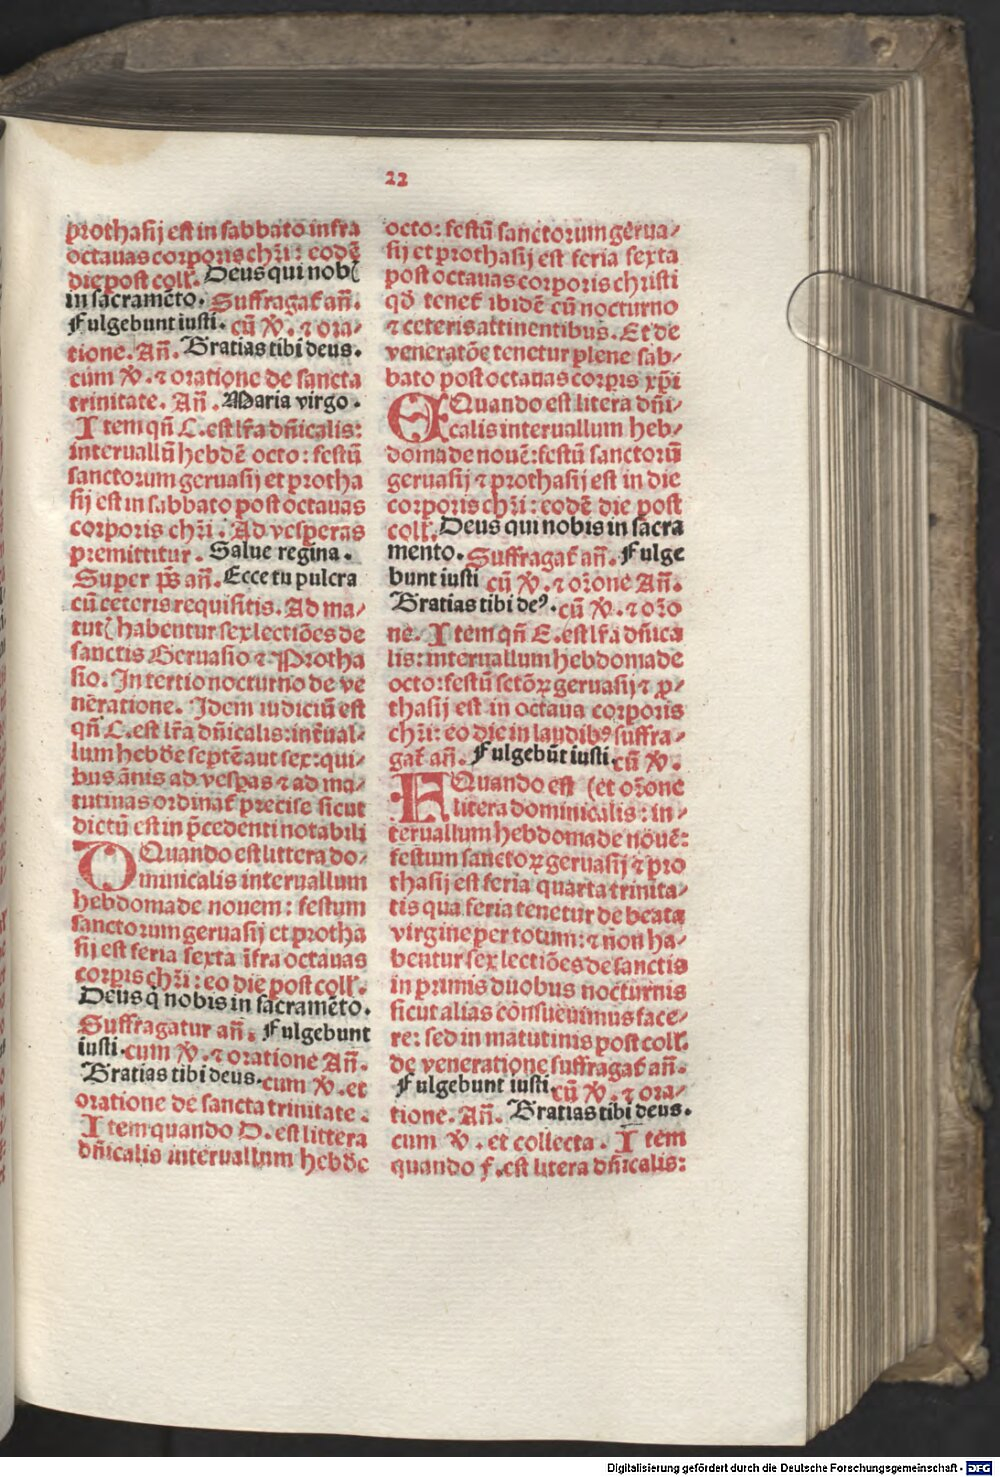 22
prothasij est in sabbato infra
octauas corporis chr̄i: eodē
die post coll̄. Deus qui nob̄
in sacramēto. Suffragat̄ an̄.
Fulgebunt iusti. cū ℣. ⁊ ora⸗
tione. An̄. Gratias tibi deus.
cum ℣. ⁊ oratione de sancta
trinitate. An̄. Maria virgo.
Item qn̄ C. est lr̄a dn̄icalis:
interuallū hebdē octo: festū
sanctorum geruasij et protha
sij est in sabbato post octauas
corporis chr̄i. Ad vesperas
premittitur. Salue regina.
Super ps̄ an̄. Ecce tu pulcra
cū ceteris requisitis. Ad ma⸗
tut̄ habentur sex lectiōes de
sanctis Geruasio ⁊ Protha
sio. In tertio nocturno de ve
neratione. Idem iudiciū est
qn̄ C. est lr̄a dn̄icalis: int̄ual⸗
lum hebd̄e septē aut sex: qui⸗
bus ānis ad vesp̄as ⁊ ad ma⸗
tutinas ordinat̄ precise sicut
dictū est in p̄cedenti notabili
D Quando est littera do⸗
minicalis interuallum
hebdomade nouem: festum
sanctorum geruasij et protha
sij est feria sexta īfra octauas
corpis chr̄i: eo die post coll̄.
Deus q̄ nobis in sacramēto.
Suffragatur an̄. Fulgebunt
iusti. cum ℣. ⁊ oratione An̄.
Gratias tibi deus. cum ℣. et
oratione de sancta trinitate.
Item quando D. est littera
dn̄icalis interuallum hebd̄e
octo: festū sanctorum gerua⸗
sij et prothasij est feria sexta
post octauas corporis christi
qd̄ tenet̄ ibidē cū nocturno
⁊ ceteris attinentibus. Et de
veneratōe tenetur plene sab⸗
bato post octauas corpis xp̄i
E Quando est litera dn̄i⸗
calis interuallum heb⸗
domade nouē: festū sanctorū
geruasij ⁊ prothasij est in die
corporis chr̄i: eodē die post
coll̄. Deus qui nobis in sacra
mento. Suffragat̄ an̄. Fulge
bunt iusti cū ℣. ⁊ or̄one An̄.
Gratias tibi deꝰ. cū ℣. ⁊ or̄o
ne. Item qn̄ E. est lr̄a dn̄ica
lis: interuallum hebdomade
octo: festū sctōꝝ geruasij ⁊ ꝓ⸗
thasij est in octaua corporis
chr̄i: eo die in laudibꝰ suffra⸗
gat̄ an̄. Fulgebūt iusti. cū ℣.
F Quando est (et or̄one
litera dominicalis: in⸗
teruallum hebdomade nouē:
festum sanctoꝝ geruasij ⁊ pro
thasij est feria quarta trinita⸗
tis qua feria tenetur de beata
virgine per totum: ⁊ non ha⸗
bentur sex lectiōes de sanctis
in primis duobus nocturnis
sicut alias consueuimus face⸗
re: sed in matutinis post coll̄.
de veneratione suffragat̄ an̄.
Fulgebunt iusti. cū ℣. ⁊ ora⸗
tione. An̄. Gratias tibi deus.
cum ℣. et collecta. Item
quando f. est litera dn̄icalis:
Digitalisierung gefördert durch die Deutsche Forschungsgemeinschaft - DFG